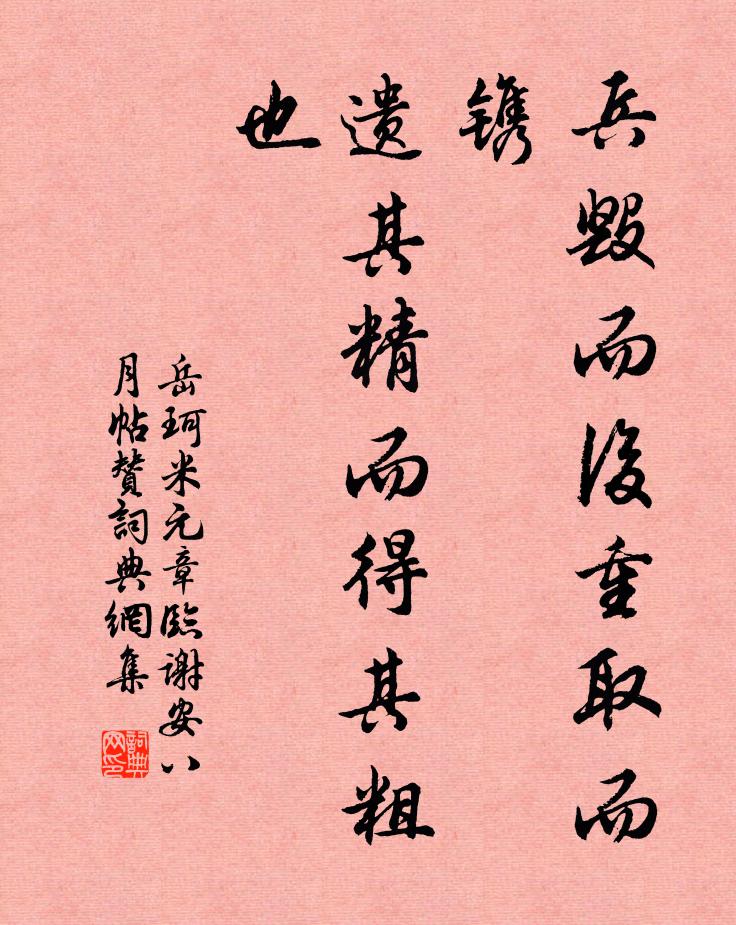 兵毁而後重取而
镌
遗其精而得其粗
也
岳珂米元章臨谢安八
月帖赞詞典網集
詞典网印